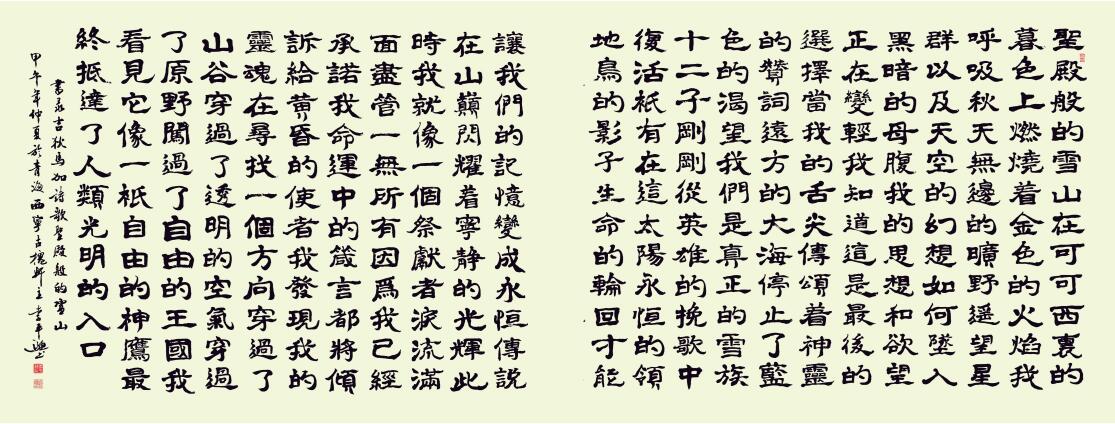 聖殿般的雪山在可可西裏的
暮色上燃燒着金色的火焰我
呼吸秋天無邊的曠野遥望星
群以及天空的幻想如何墜入
黑暗的母腹我的思想和欲望
正在變輕我知道這是最後的
選擇當我的舌尖傳頌着神靈
的贊詞遠方的大海停止了藍
色的渴望我們是真正的雪族
十二子剛剛從英雄的挽歌中
復活祇有在這太陽永恒的領
地鳥的影子生命的輪回才能
讓我們的記憶變成永恒傳説
在山巔閃耀着寧静的光輝此
時我就像一個祭獻者淚流滿
面盡管一無所有因爲我已經
承諾我命運中的箴言都將傾
訴給黄昏的使者我發現我的
靈魂在尋找一個方向穿過了
山谷穿過了透明的空氣穿過
了原野闖過了自由的王國我
看見它像一祇自由的神鷹最
終抵達了人類光明的入口
書录吉狄馬加詩歌聖殿般的雪山
甲午年仲夏於青海西寧古槐軒主李平